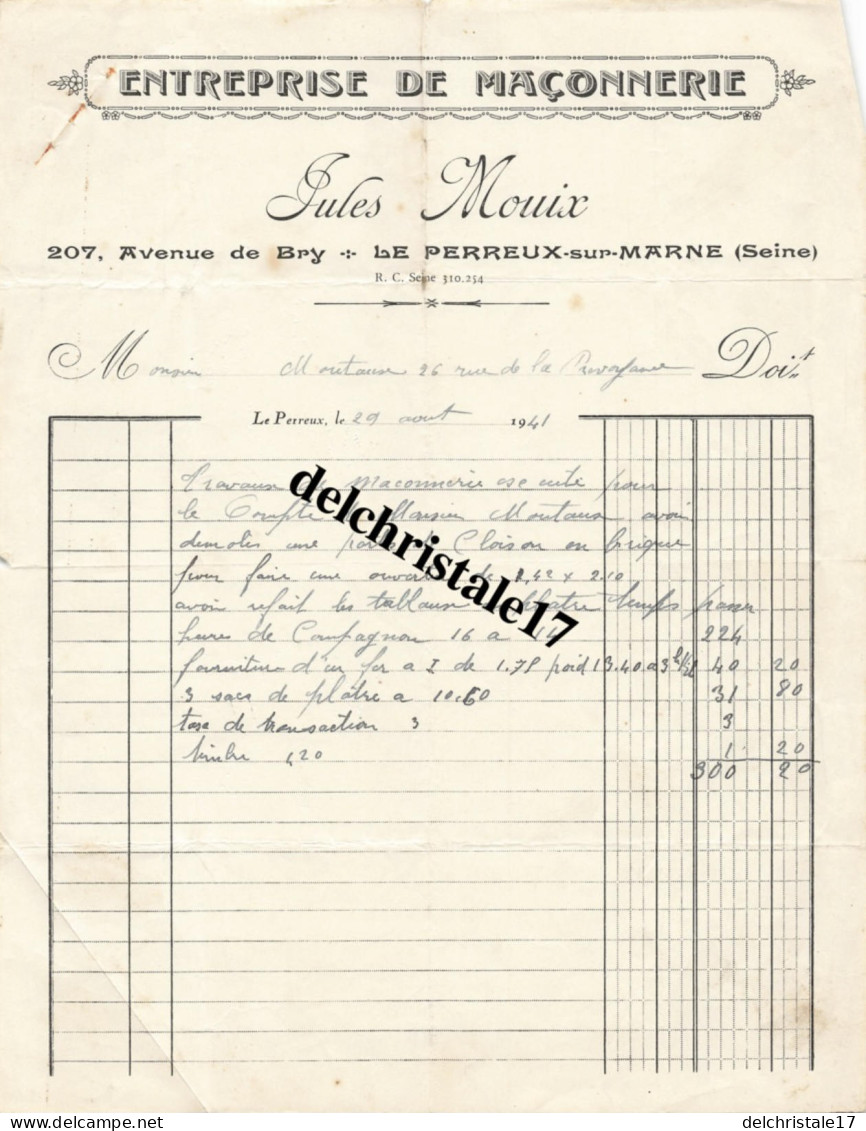 ENTREPRISE DE MAÇONNERIE
Jules Mouix
207, Avenue de Bry LE PERREUX-sur-MARNE (Seine)
R. C. Seine 310.254
Monsieur Montaux 26 rue de la Prévoyance Doit
Le Perreux, le 29 aout 1941
travaux de maconnerie execute pour
le Compte de Monsieur Montaux avoir
demolis une partie de Cloison en brique
pour faire une ouverture de 1,42 x 2.10
avoir refait les tableaux plâtre temps passer
heures de Compagnon 16 a 14 224
fourniture d'un fer a I de 1.75 poid 13.40 a 3 40 20
3 sacs de plâtre a 10.60 31 80
taxe de transaction 3 3
timbre 1,20 1 20
300 20
delchristale17
www.delcampe.net delchristale17